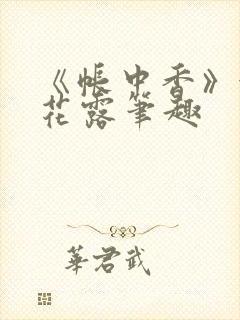 《帐中香》
花露笔趣
華君武